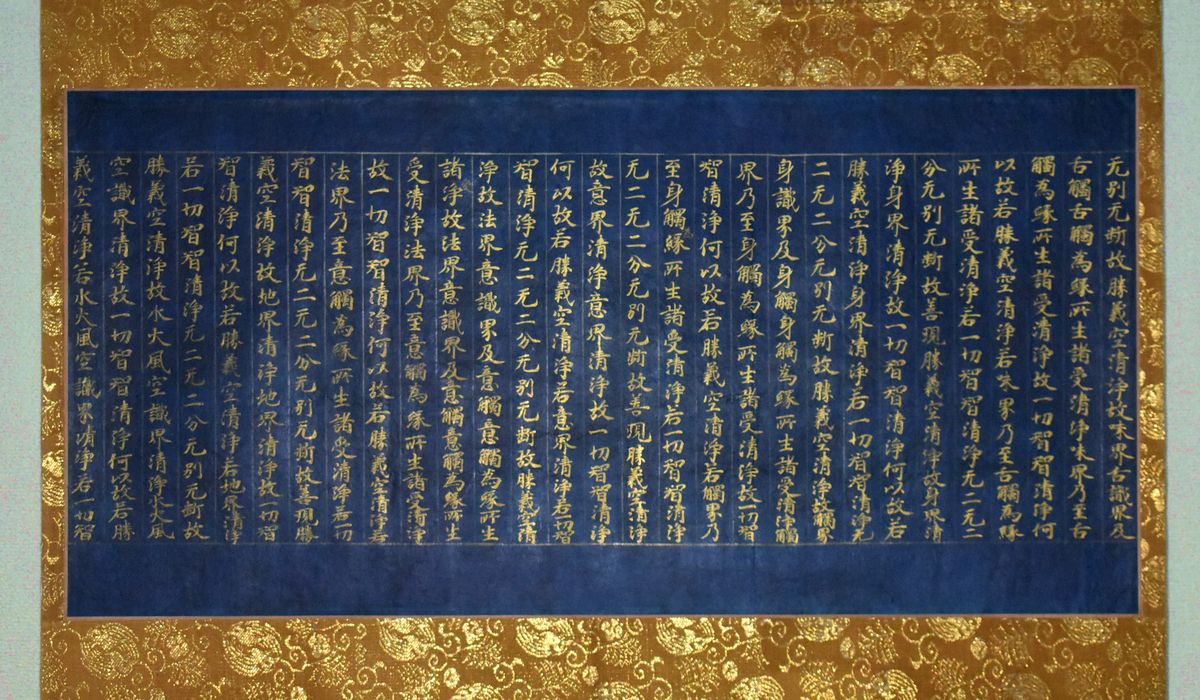 无別无断故勝義空清淨故味界舌識界及
舌觸舌觸為縁所生諸受清淨味界乃至舌
觸為縁所生諸受清淨故一切智智清淨何
以故若勝義空清淨若味界乃至舌觸為縁
所生諸受清淨若一切智智清淨无二无二
分无別无断故善現勝義空清淨故身界清
淨身界清淨故一切智智清淨何以故若
勝義空清淨身界清淨若一切智智清淨无
二无二分无別无断故勝義空清淨故觸界
身識界及身觸身觸為縁所生諸受清淨觸
界乃至身觸為縁所生諸受清淨故一切智
智清淨何以故若勝義空清淨若觸界乃
至身觸縁所生諸受清淨若一切智智清淨
无二无二分无別无断故善現勝義空清淨
故意界清淨意界清淨故一切智智清淨
何以故若勝義空清淨若意界清淨若切智
智清淨无二无二分无別无断故勝義空清
淨故法界意識界及意觸意觸為縁所生
諸淨故法界意識界及意觸意觸為縁所生
受清淨法界乃至意觸為縁所生諸受清淨
故一切智智清淨何以故若勝義空清淨若
法界乃至意觸為縁所生諸受清淨若一切
智智清淨无二无二分无別无断故善現勝
義空清淨故地界清淨地界清淨故一切智
智清淨何以故若勝義空清淨若地界清淨
若一切智智清淨无二无二分无別无断故
勝義空清淨故水火風空識界清淨水火風
空識界清淨故一切智智清淨何以故若勝
義空清淨若水火風空識界清淨若一切智